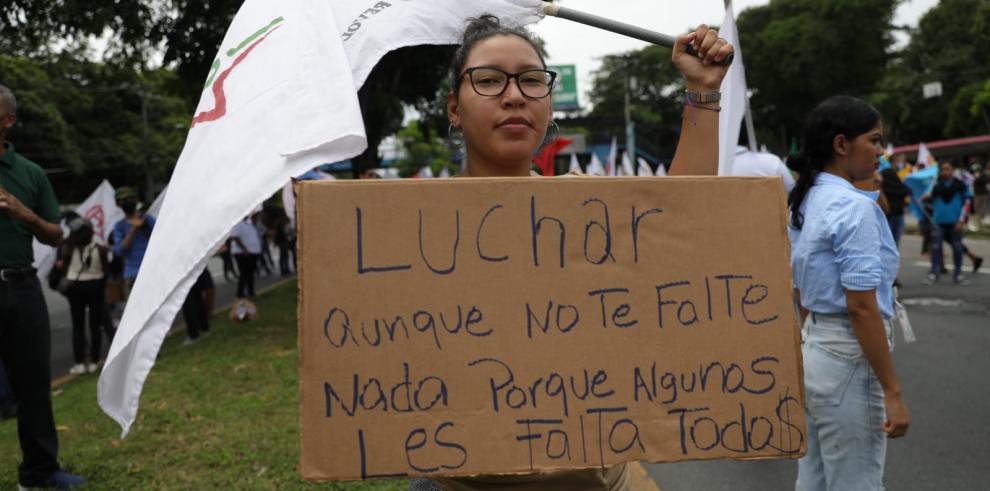 LUchar
Aunque No Te FalTe
Nada Porque Algunas
Les FalTa Toda$